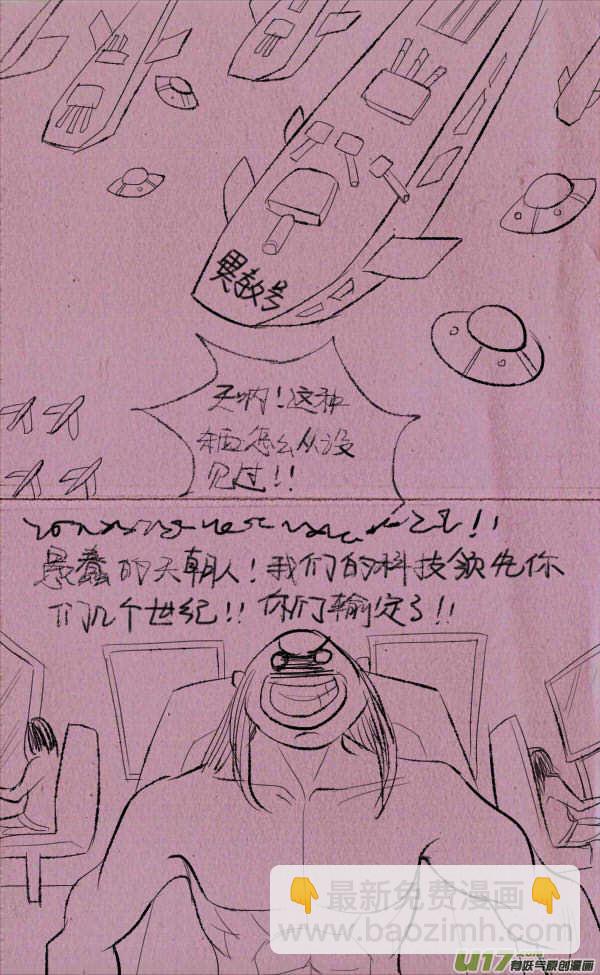 異教号
天啊！这种
东西怎么从没
见过！！
愚蠢的天朝人！我们的科技领先你
们几个世纪！！你们输定了！！
👇最新免费漫画👇
www.baozimh.com
U17.com
有妖气原创漫画